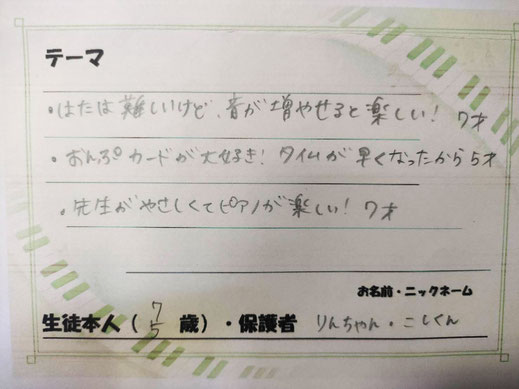 テーマ
・はたは難しいけど、音が増やせると楽しい! 7才
・おんぷカードが大好き! タイムが早くなったから 5才
・先生がやさしくてピアノが楽しい! 7才
お名前・ニックネーム
生徒本人(7 5 歳)・保護者 りんちゃん・こしくん